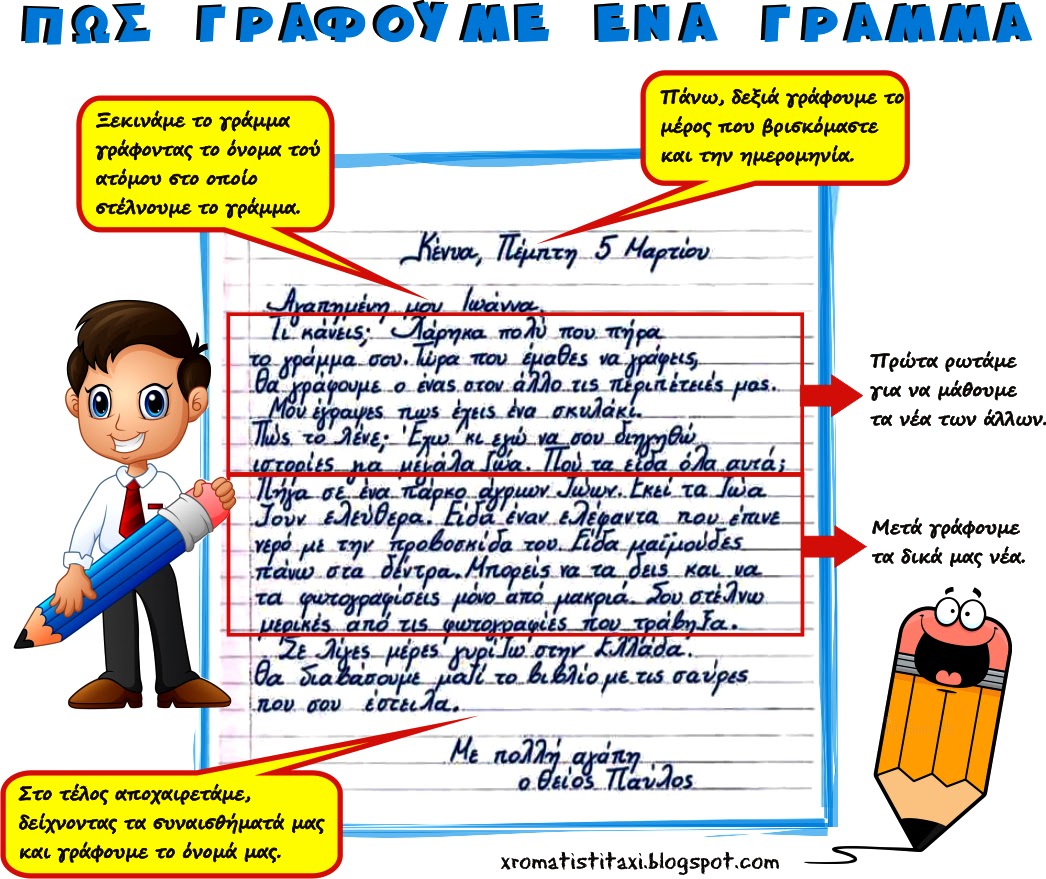 ΠΩΣ ΓΡΑΦΟΥΜΕ ΕΝΑ ΓΡΑΜΜΑ
Ξεκινάμε το γράμμα
γράφοντας το όνομα τού
ατόμου στο οποίο
στέλνουμε το γράμμα.
Πάνω, δεξιά γράφουμε το
μέρος που βρισκόμαστε
και την ημερομηνία.
Κένυα, Πέμπτη 5 Μαρτίου
Αγαπημένη μου Ιωάννα.
Τι κάνεις; Χάρηκα πολύ που πήρα
το γράμμα σου. Τώρα που έμαθες να γράφεις,
θα γράφουμε ο ένας στον άλλο τις περιπέτειές μας.
Μου έγραψες πως έχεις ένα σκυλάκι.
Πώς το λένε; Έχω κι εγώ να σου διηγηθώ
ιστορίες για μεγάλα ζώα. Πού τα είδα όλα αυτά;
Πήγα σε ένα πάρκο άγριων ζώων. Εκεί τα ζώα
ζουν ελεύθερα. Είδα έναν ελέφαντα που έπινε
νερό με την προβοσκίδα του. Είδα μαϊμούδες
πάνω στα δέντρα. Μπορείς να τα δεις και να
τα φωτογραφίσεις μόνο από μακριά. Σου στέλνω
μερικές από τις φωτογραφίες που τράβηξα.
Σε λίγες μέρες γυρίζω στην Ελλάδα.
Θα διαβάσουμε μαζί το βιβλίο με τις σαύρες
που σου έστειλα.
Με πολλή αγάπη
ο θείος Παύλος
Πρώτα ρωτάμε
για να μάθουμε
τα νέα των άλλων.
Μετά γράφουμε
τα δικά μας νέα.
Στο τέλος αποχαιρετάμε,
δείχνοντας τα συναισθήματά μας
και γράφουμε το όνομά μας.
xromatistitaxi.blogspot.com